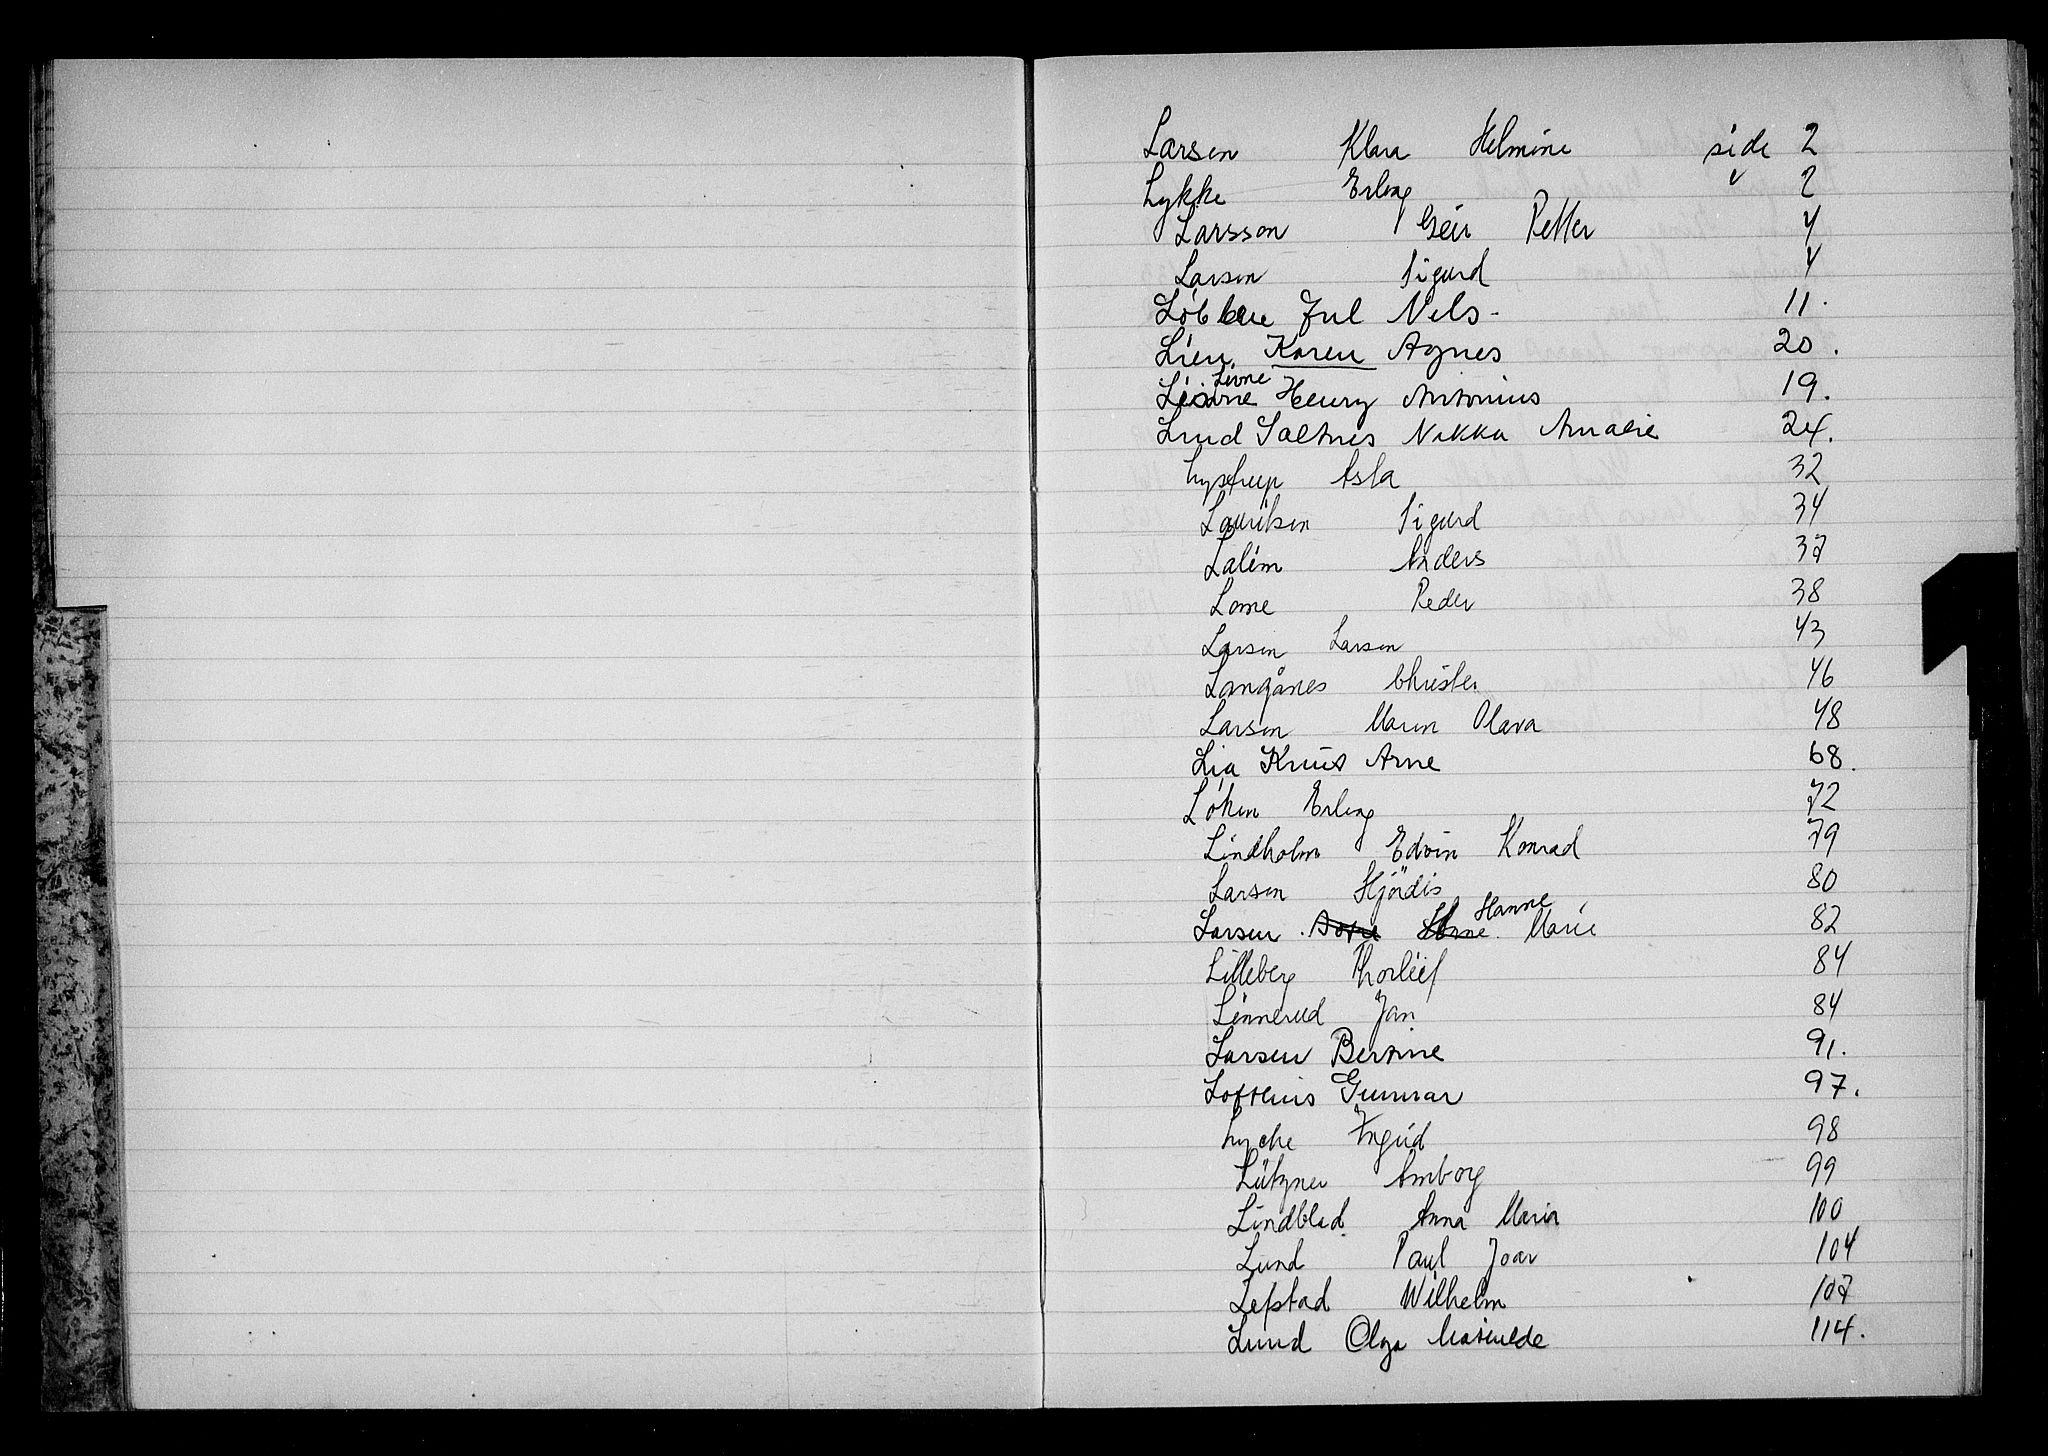 Larsen Klara Helmine side 2
Lykke Erling v 2
Larsson Geir Petter 4
Larsen Sigurd 4
Løbben Jul Nils - 11.
Lien Karen Agnes 20.
Livne
Henry Antonius 19.
Lund Saltnes Nikka Amalie 24.
Lystrup Asta 32
Lauritsen Sigurd 34
Lalim Anders 37
Lome Peder 38
Larsen Larson 43
Langånes Christer 46
Larsen Maren Olava 48
Lia Knut Arne 68.
Løken Erling 72
Lindholm Edvin Konrad 79
Larsen Hjördis 80
Hanne
Larsen Marie 82
Lilleberg Thorleif 84
Linnerud Jan 84
Larsen Bertine 91.
Lofthus Gunnar 97.
Lyche Ingrid 98
Lützner Amborg 99
Lindblad Anna Maria 100
Lund Paul Joar 104
Lefstad Wilhelm 107
Lund Olga Matilde 114.